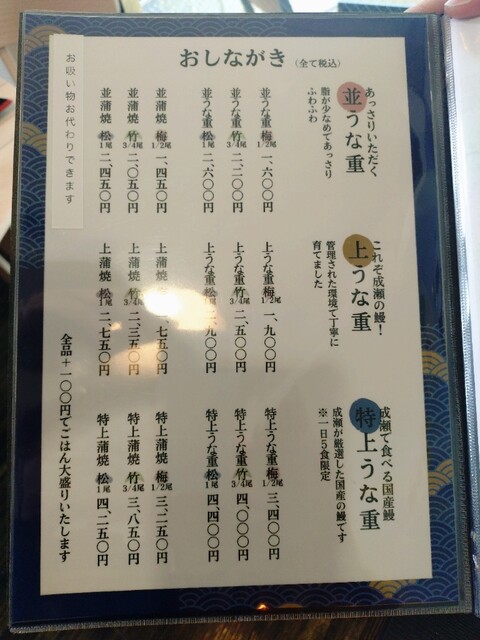 おしながき（全て税込）
あっさりいただく
並うな重
脂が少なめであっさり
ふわふわ
並うな重 梅 1/2尾 一、六〇〇円
並うな重 竹 3/4尾 二、二〇〇円
並うな重 松 1尾 二、六〇〇円
並蒲焼 梅 1/2尾 一、四五〇円
並蒲焼 竹 3/4尾 二、〇五〇円
並蒲焼 松 1尾 二、四五〇円
これぞ成瀬の鰻！
上うな重
管理された環境で丁寧に
育てました
上うな重 梅 1/2尾 一、九〇〇円
上うな重 竹 3/4尾 二、五〇〇円
上うな重 松 1尾 九〇〇円
上蒲焼 七五〇円
上蒲焼 竹 3/4尾 二、三五〇円
上蒲焼 松 1尾 二、七五〇円
成瀬で食べる国産鰻
特上うな重
成瀬が厳選した国産の鰻です
※一日5食限定
特上うな重 梅 1/2尾 三、四〇〇円
特上うな重 竹 3/4尾 四、〇〇〇円
特上うな重 松 1尾 四、四〇〇円
特上蒲焼 梅 1/2尾 三、二五〇円
特上蒲焼 竹 3/4尾 三、八五〇円
特上蒲焼 松 1尾 四、二五〇円
全品＋一〇〇円でごはん大盛りいたします
お吸い物お代わりできます